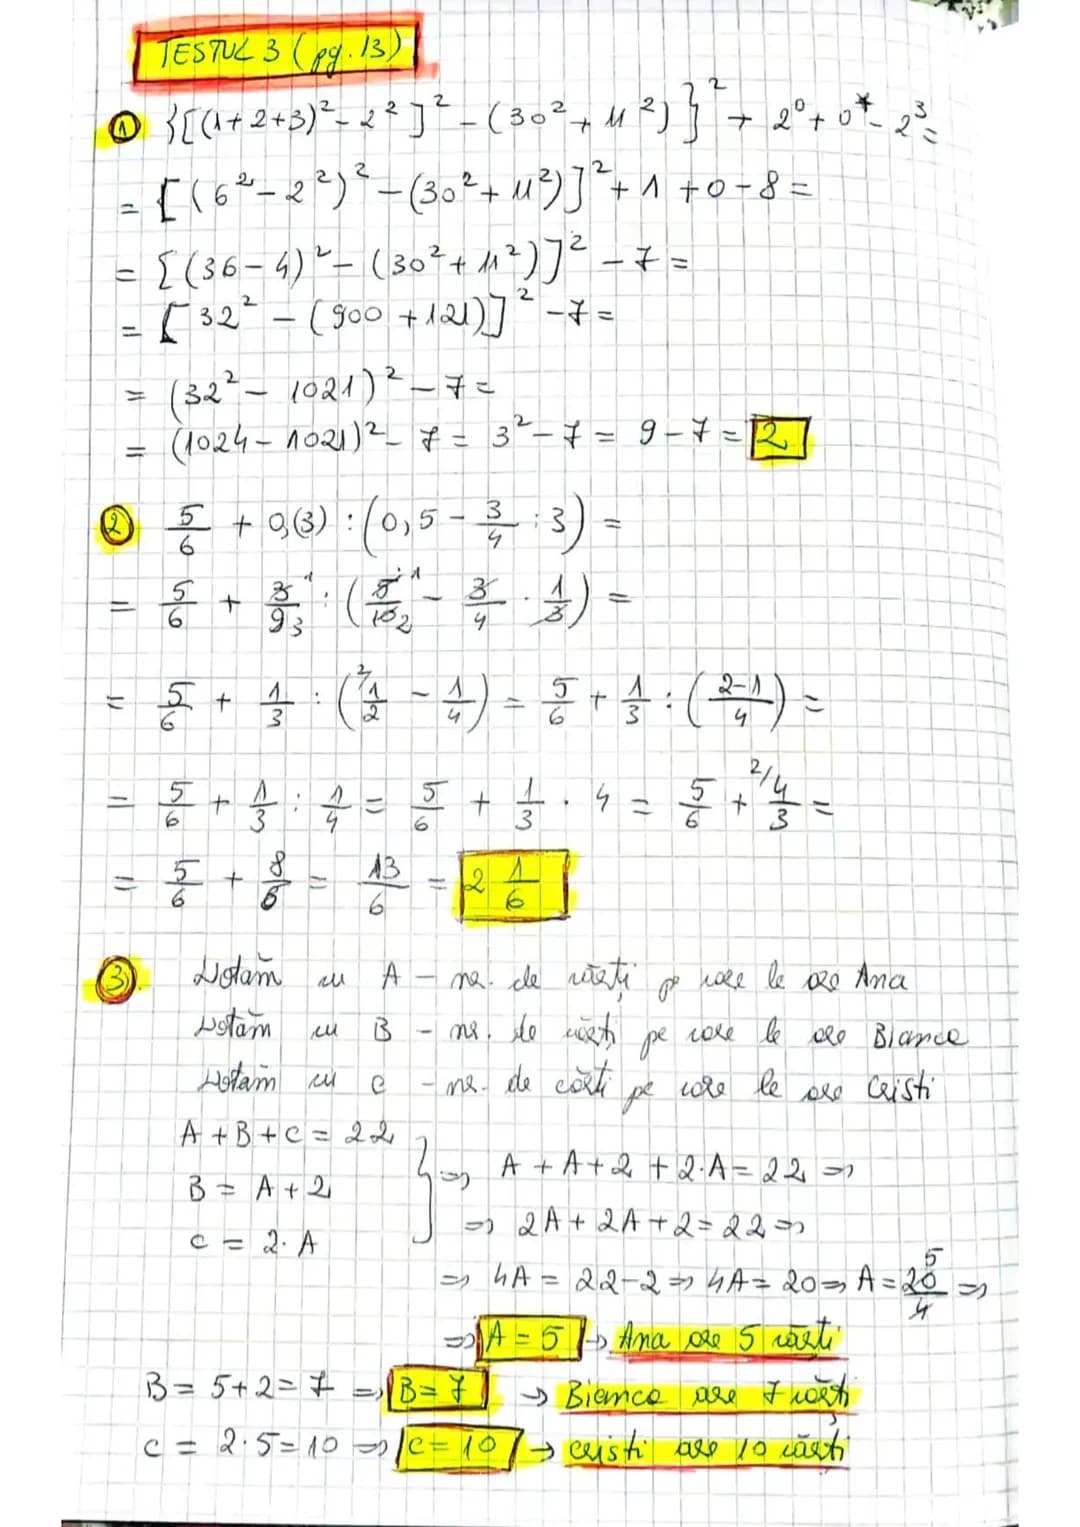 TESTUL 3 (pg. 13)
① {[(1+2+3)² - 2²]² - (30² + 11²)}² + 2⁰ + 0⁴ - 2³ =
= [(6² - 2²)² - (30² + 11²)]² + 1 + 0 - 8 =
= [(36 - 4)² - (30² + 11²)]² - 7 =
= [32² - (900 + 121)]² - 7 =
= (32² - 1021)² - 7 =
= (1024 - 1021)² - 7 = 3² - 7 = 9 - 7 = 2
② 5/6 + 0,(3) : (0,5 - 3/4 : 3) =
= 5/6 + 3/9 : (5/10 - 3/4 · 1/3) =
= 5/6 + 1/3 : (²⁾1/2 - 1/4) = 5/6 + 1/3 : ((2-1)/4) =
= 5/6 + 1/3 : 1/4 = 5/6 + 1/3 · 4 = 5/6 + ²⁾4/3 =
= 5/6 + 8/6 = 13/6 = 2 1/6
③ Notăm cu A - nr. de cărți pe care le are Ana
Notăm cu B - nr. de cărți pe care le are Bianca
Notăm cu C - nr. de cărți pe care le are Cristi
A + B + C = 22
B = A + 2
C = 2 · A
} => A + A + 2 + 2·A = 22 =>
=> 2A + 2A + 2 = 22 =>
=> 4A = 22 - 2 => 4A = 20 => A = 20/4 5 =>
=> A = 5 → Ana are 5 cărți
B = 5 + 2 = 7 => B = 7 → Bianca are 7 cărți
C = 2 · 5 = 10 => C = 10 → Cristi are 10 cărți